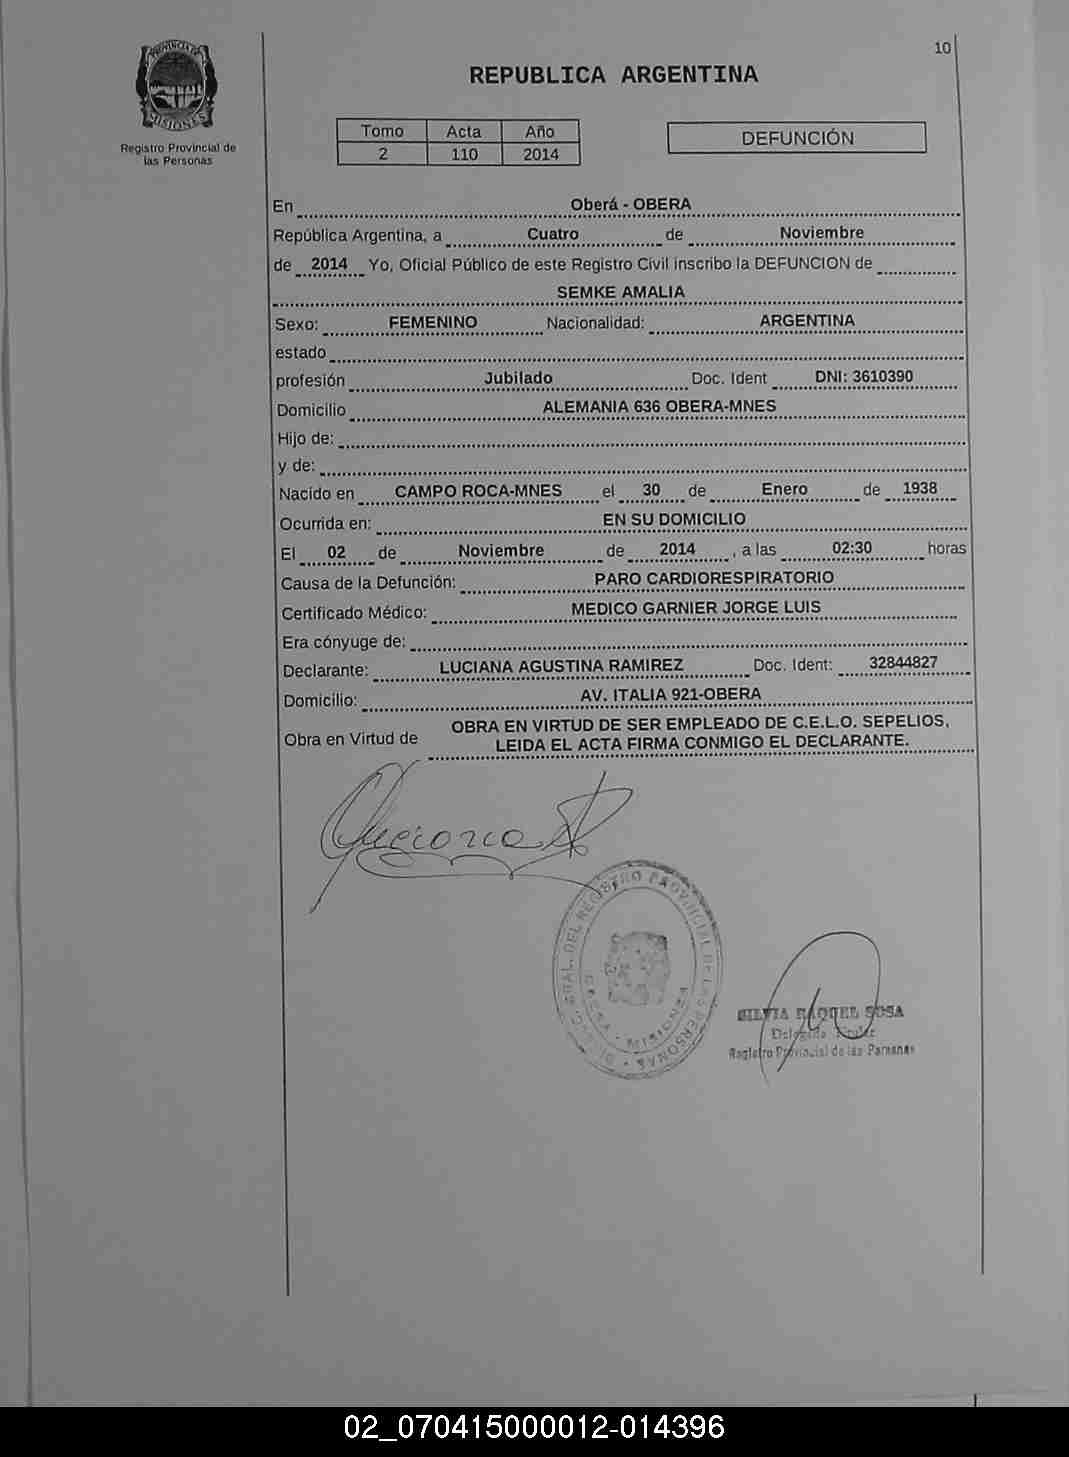 10
PROVINCIA DE
MISIONES
Registro Provincial de
las Personas
REPUBLICA ARGENTINA
Tomo Acta Año
2 110 2014
DEFUNCIÓN
En Oberá - OBERA
República Argentina, a Cuatro de Noviembre
de 2014 Yo, Oficial Público de este Registro Civil inscribo la DEFUNCION de
SEMKE AMALIA
Sexo: FEMENINO Nacionalidad: ARGENTINA
estado
profesión Jubilado Doc. Ident DNI: 3610390
Domicilio ALEMANIA 636 OBERA-MNES
Hijo de:
y de:
Nacido en CAMPO ROCA-MNES el 30 de Enero de 1938
Ocurrida en: EN SU DOMICILIO
El 02 de Noviembre de 2014, a las 02:30 horas
Causa de la Defunción: PARO CARDIORESPIRATORIO
Certificado Médico: MEDICO GARNIER JORGE LUIS
Era cónyuge de:
Declarante: LUCIANA AGUSTINA RAMIREZ Doc. Ident: 32844827
Domicilio: AV. ITALIA 921-OBERA
Obra en Virtud de OBRA EN VIRTUD DE SER EMPLEADO DE C.E.L.O. SEPELIOS,
LEIDA EL ACTA FIRMA CONMIGO EL DECLARANTE.
GRAL. DEL REGISTRO PROVINCIAL DE LAS PERSONAS
MISIONES
SILVIA RAQUEL SOSA
Delegada Titular
Registro Provincial de las Personas
02_070415000012-014396